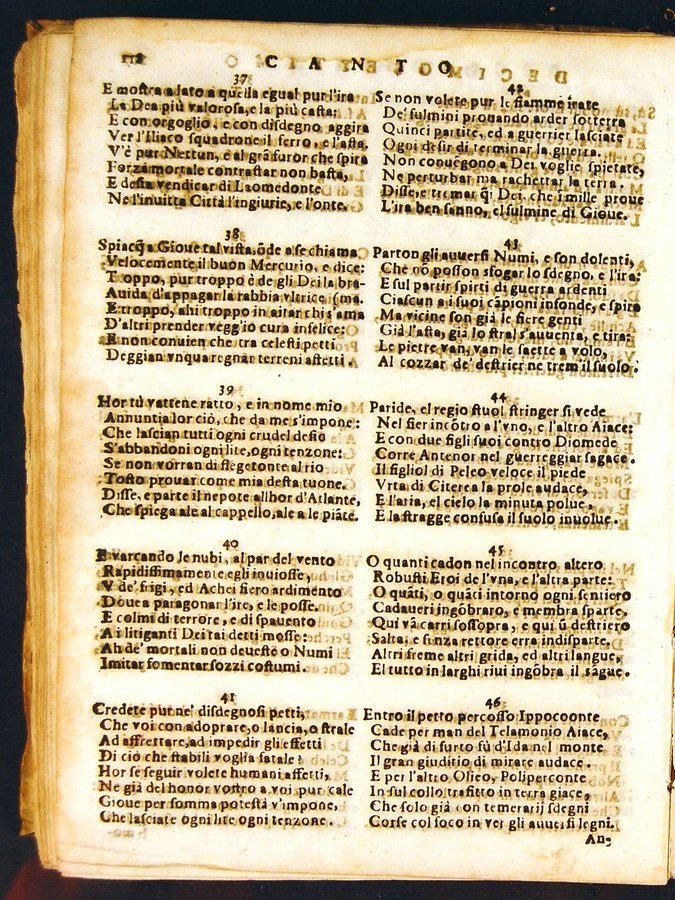 118 CANTO
37
E mostra a lato a quella egual pur l'ira
La Dea più valorosa, e la più casta:
E con orgoglio, e con disdegno aggira
Ver l'Iliaco squadrone il ferro, e l'asta.
V'è pur Nettun, e al grã furor che spira
Forza mortale contrastar non basta,
E desta vendicar di Laomedonte
Ne l'inuitta Città l'ingiurie, e l'onte.
38
Spiacq̃ a Gioue tal vista, õde a se chiama
Velocemente il buon Mercurio, e dice:
Troppo, pur troppo è de gli Dei la bra-
Auida d'appagar la rabbia vltrice (ma.
E troppo, ahi troppo in aitar chi s'ama
D'altri prender veggio cura infelice:
E non conuien che tra celesti petti
Deggian vnqua regnar terreni affetti.
39
Hor tù vattene ratto, e in nome mio
Annuntia lor ciò, che da me s'impone:
Che lascian tutti ogni crudel desio
S'abbandoni ogni lite, ogni tenzone:
Se non vorran di flegetonte al rio
Tosto prouar come mia desta tuone.
Disse, e parte il nepote allhor d'Atlante,
Che spiega ale al cappello, ale a le piãte.
40
E varcando le nubi, al par del vento
Rapidissimamente egli inuiosse,
V de' frigi, ed Achei fiero ardimento
Douea paragonar l'ire, e le posse.
E colmi di terrore, e di spauento
A i litiganti Dei tai detti mosse:
Ah de' mortali non deueste o Numi
Imitar, fomentar sozzi costumi.
41
Credete pur ne' disdegnosi petti,
Che voi con adoprare, o lancia, o strale
Ad affrettare, ad impedir gli effetti
Di ciò che stabili voglia fatale?
Hor se seguir volete humani affetti,
Ne già del honor vostro a voi pur cale
Gioue per somma potestà v'impone,
Che lasciate ogni lite ogni tenzone.
42
Se non volete pur le fiamme irate
De' fulmini prouando arder sotterra
Quinci partite, ed a guerrier lasciate
Ogni desir di terminar la guerra.
Non conuẽgono a Dei voglie spietate,
Ne perturbar ma rachettar la terra.
Disse, e tremar q̃i Dei, che i mille proue
L'ira ben sanno, e l fulmine di Gioue.
43
Parton gli auuersi Numi, e son dolenti,
Che nõ posson sfogar lo sdegno, e l'ira:
E sul partir spirti di guerra ardenti
Ciascun a i suoi cãpioni infonde, e spira
Ma vicine son già le fiere genti
Già l'asta, già lo stral s'auuenta, e tira:
Le pietre van, van le saette a volo,
Al cozzar de' destrier ne trem il suolo.
44
Paride, el regio stuol stringer si vede
Nel fier incõtro a l'vno, e l'altro Aiace:
E con due figli suoi contro Diomede
Corre Antenor nel guerreggiar sagace.
Il figliol di Peleo veloce il piede
Vrta di Citerea la prole audace,
E l'aria, el cielo la minuta polue,
E la stragge confusa il suolo inuolue.
45
O quanti cadon nel incontro altero
Robusti Eroi de l'vna, e l'altra parte:
O quãti, o quãti intorno ogni sentiero
Cadaueri ingõbraro, e membra sparte.
Qui và carri sossopra, e qui ũ destriero
Salta; e senza rettore erra indisparte.
Altri freme altri grida, ed altri langue,
E l tutto in larghi riui ingõbra il sãgue.
46
Entro il petto percosso Ippocoonte
Cade per man del Telamonio Aiace,
Che già di furto fù d'Ida nel monte
Il gran giuditio di mirare audace.
E per l'altro Oileo, Poliperconte
In sul collo trafitto in terra giace,
Che solo già con temerarij sdegni
Corse col foco in ver gli auuersi legni.
An-